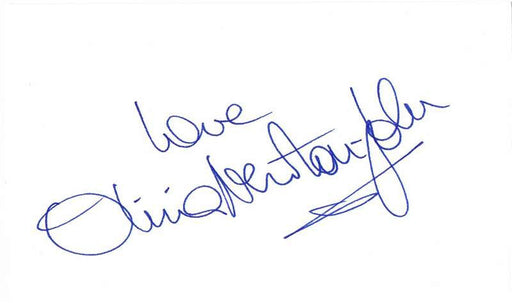 Love
Olivia Newton-John